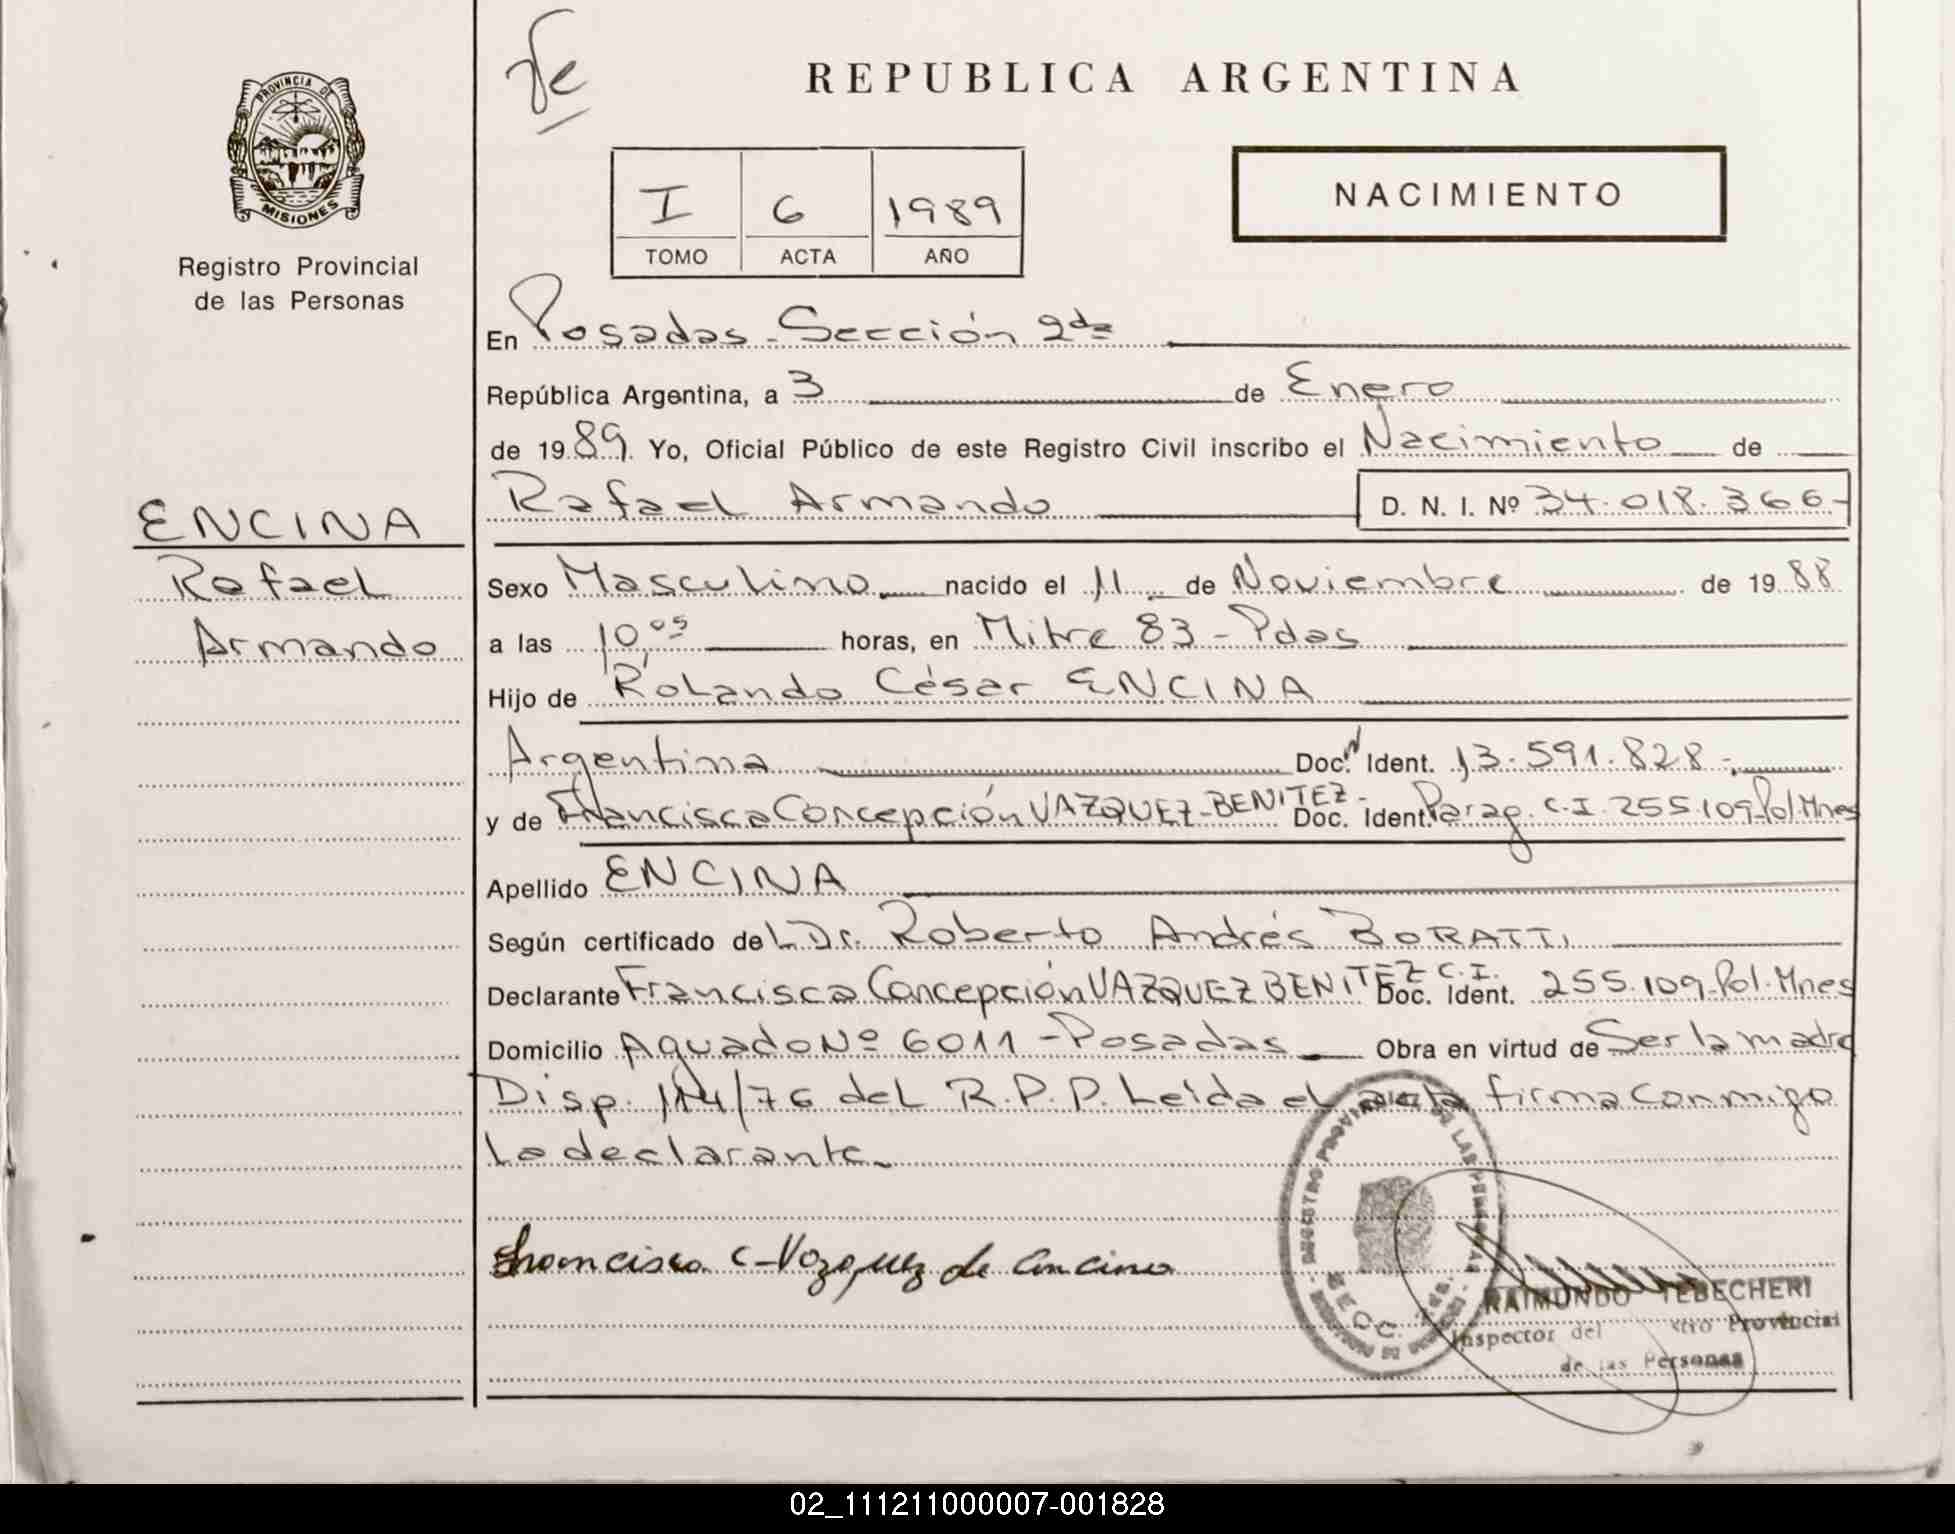 PROVINCIA DE
MISIONES
Registro Provincial
de las Personas
REPUBLICA ARGENTINA
I 6 1989
TOMO ACTA AÑO
NACIMIENTO
En Posadas - Sección 2da
República Argentina, a 3 de Enero
de 1989. Yo, Oficial Público de este Registro Civil inscribo el Nacimiento de
Rafael Armando D. N. I. Nº 34.018.366-
ENCINA
Rafael
Armando
Sexo Masculino nacido el 11 de Noviembre de 1988
a las 10,05 horas, en Mitre 83 - Pdas
Hijo de Rolando César ENCINA
Argentina Doc. Ident. 13.591.828-
y de Francisca Concepción VAZQUEZ-BENITEZ- Doc. Ident. Parag. C.I. 255.109-Pol.Mnes
Apellido ENCINA
Según certificado del Dr. Roberto Andrés BORATTI
Declarante Francisca Concepción VAZQUEZ BENITEZ C.I. Doc. Ident. 255.109-Pol.Mnes
Domicilio Aguado Nº 6011 - Posadas Obra en virtud de Ser la madre
Disp. 114/76 del R.P.P. Leída el acta firma conmigo
la declarante.
Francisca C-Vazquez de Encina
REGISTRO PROVINCIAL DE LAS PERSONAS
SECC.
RAIMUNDO TEBECHERI
Inspector del Provincial
de las Personas
02_111211000007-001828